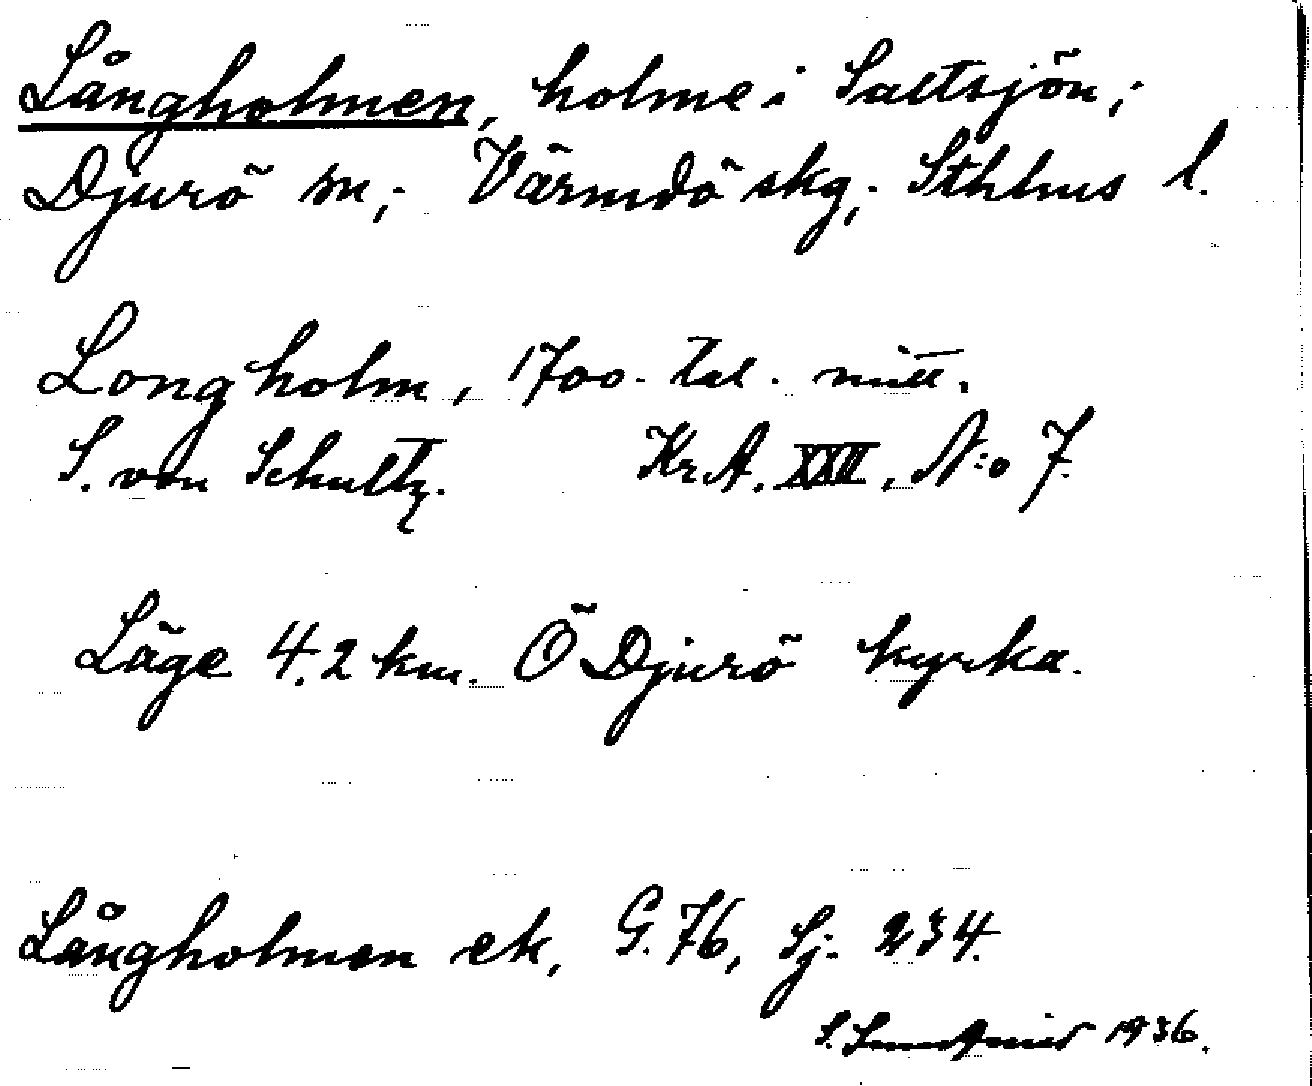 Långholmen, holme i Saltsjön;
Djurö sn; Värmdö skg; Sthlms l.
Longholm, 1700-tal. mitt.
S. von Schultz. Kr.A. XXII, N:o 7.
Läge 4.2 km. Ö Djurö kyrka.
Långholmen ek, G. 76, Sj. 234.
S. 1936.